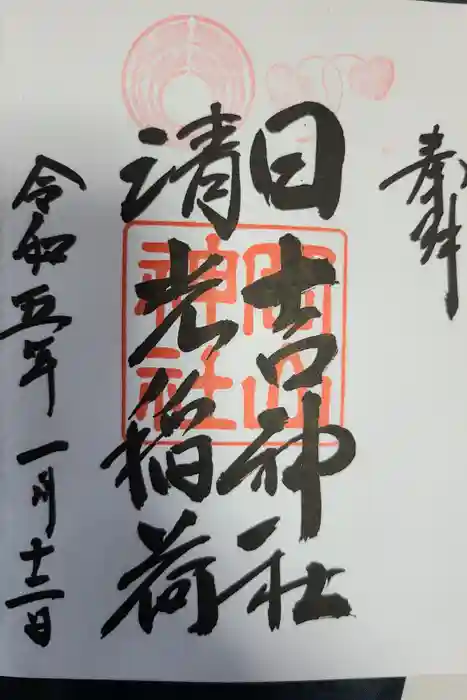 奉拝
日吉神社
清光稲荷
岡山神社
令和五年一月十二日